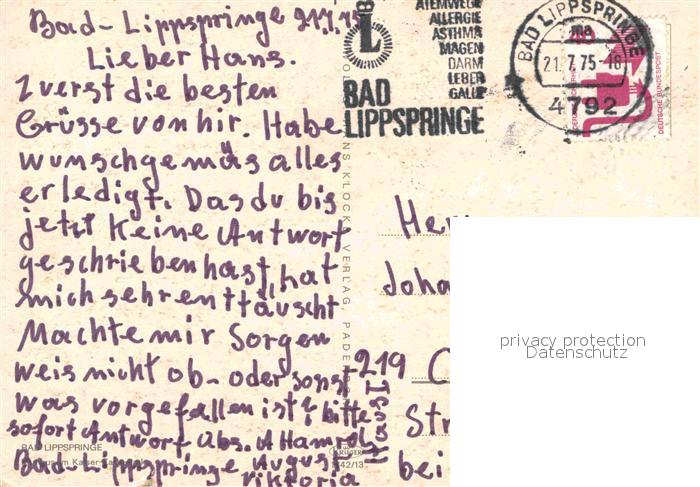 Bad-Lippspringe 21.7.75
Lieber Hans.
Zuerst die besten
Grüsse von hir. Habe
wunschgemäs alles
erledigt. Das du bis
jetzt keine Antwort
geschrieben hast, hat
mich sehr enttäuscht
Machte mir Sorgen
weis nicht ob- oder sons
was vorgefallen ist bitte
sofort Antwort Abs. A
Bad-Lippspringe August
Viktoria
Haus
ATEMWEGE
ALLERGIE
ASTHMA
MAGEN
DARM
LEBER
GALLE
BAD
LIPPSPRINGE
BAD LIPPSPRINGE
21.7.75-18
4792
DEUTSCHE BUNDESPOST
Her
Joha
219
Str
bei
VERLAG, PADE
BAD LIPPSPRINGE
KRÜGER
42/13
privacy protection
Datenschutz